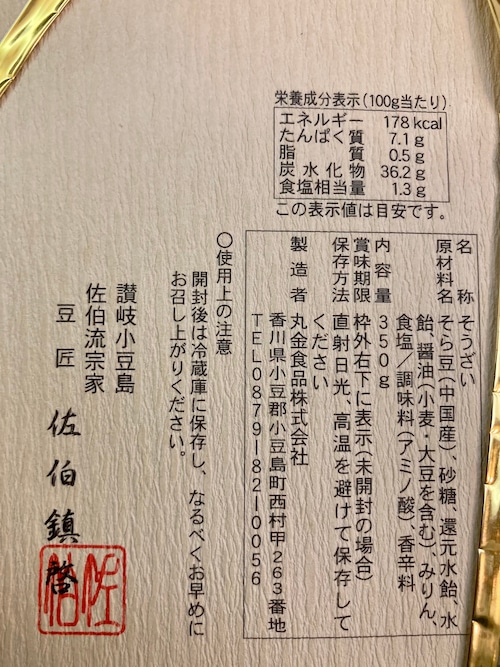 栄養成分表示(100g当たり)
エネルギー 178kcal
たんぱく質 7.1g
脂質 0.5g
炭水化物 36.2g
食塩相当量 1.3g
この表示値は目安です。
名称 そうざい
原材料名 そら豆(中国産)、砂糖、還元水飴、水
飴、醤油(小麦・大豆を含む)、みりん、
食塩/調味料(アミノ酸)、香辛料
内容量 350g
賞味期限 枠外右下に表示(未開封の場合)
保存方法 直射日光、高温を避けて保存して
ください
製造者 丸金食品株式会社
香川県小豆郡小豆島町西村甲263番地
TEL0879-82-0056
○使用上の注意
開封後は冷蔵庫に保存し、なるべくお早めに
お召し上がりください。
讃岐小豆島
佐伯流宗家
豆匠 佐伯鎮啓
佐伯